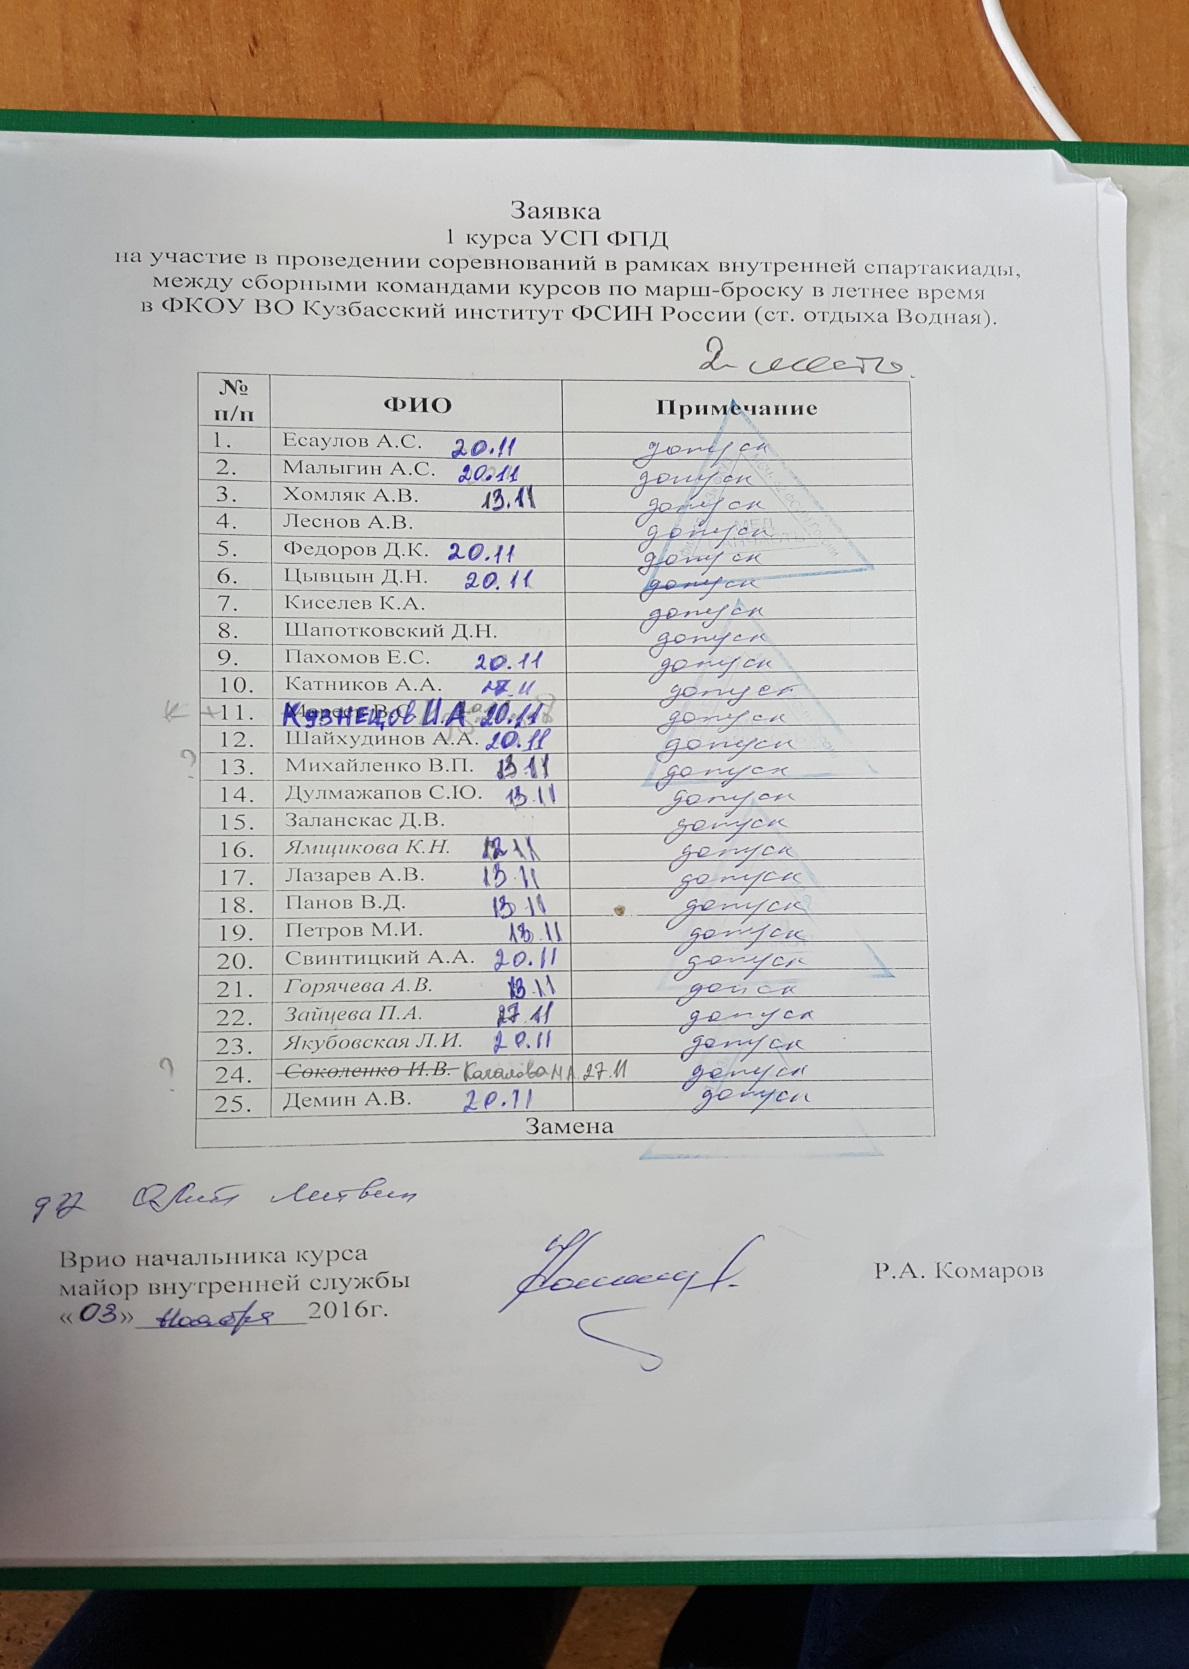 Заявка
1 курса УСП ФПД
на участие в проведении соревнований в рамках внутренней спартакиады,
между сборными командами курсов по марш-броску в летнее время
в ФКОУ ВО Кузбасский институт ФСИН России (ст. отдыха Водная).
2 место.
№ п/п ФИО Примечание
1. Есаулов А.С. 20.11 допуск
2. Малыгин А.С. 20.11 допуск
3. Хомляк А.В. 13.11 допуск
4. Леснов А.В. допуск
5. Федоров Д.К. 20.11 допуск
6. Цывцын Д.Н. 20.11 допуск
7. Киселев К.А. допуск
8. Шапотковский Д.Н. допуск
9. Пахомов Е.С. 20.11 допуск
10. Катников А.А. 27.11 допуск
К + 11. Кузнецов И.А 20.11 допуск
12. Шайхудинов А.А. 20.11 допуск
? 13. Михайленко В.П. 13.11 допуск
14. Дулмажапов С.Ю. 13.11 допуск
15. Заланскас Д.В. допуск
16. Ямщикова К.Н. 12.11 допуск
17. Лазарев А.В. 13.11 допуск
18. Панов В.Д. 13.11 допуск
19. Петров М.И. 13.11 допуск
20. Свинтицкий А.А. 20.11 допуск
21. Горячева А.В. 13.11 допуск
22. Зайцева П.А. 27.11 допуск
23. Якубовская Л.И. 20.11 допуск
? 24. Соколенко И.В. 27.11 допуск
25. Демин А.В. 20.11 допуск
Замена
Врио начальника курса
майор внутренней службы Р.А. Комаров
«03» ноября 2016г.